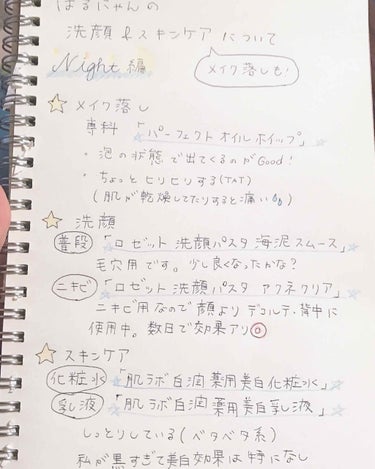 はるにゃんの
洗顔&スキンケア について
Night 編
メイク落しも!
☆ メイク落し
専科 「パーフェクト オイル ホイップ」
・泡の状態で出てくるのがGood!
・ちょっとヒリヒリする(TAT)
(肌が乾燥してたりすると痛い)
☆ 洗顔
普段 「ロゼット 洗顔パスタ 海泥スムース」
毛穴用です。少し良くなったかな?
ニキビ 「ロゼット 洗顔パスタ アクネクリア」
ニキビ用なので 顔より デコルテ・背中に
使用中。数日で効果アリ◎
☆ スキンケア
化粧水 「肌ラボ 白潤 薬用美白化粧水」
乳液 「肌ラボ 白潤 薬用美白乳液」
しっとりしている(ベタベタ系)
私が黒すぎて美白効果は特になし